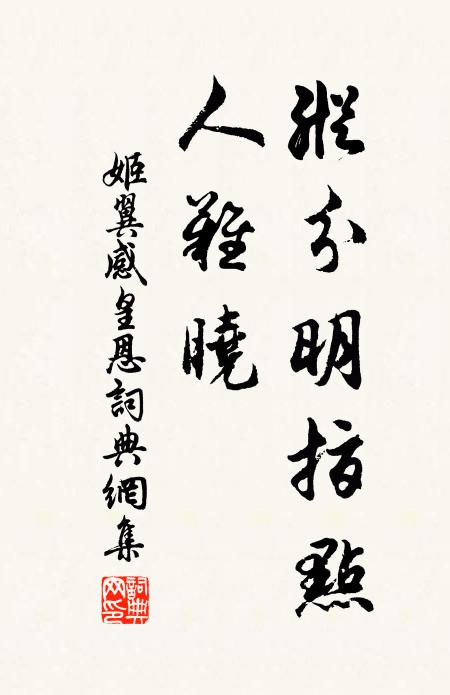 縱分明指點
人難曉
姬翼感皇恩詞典網集
詞典網印